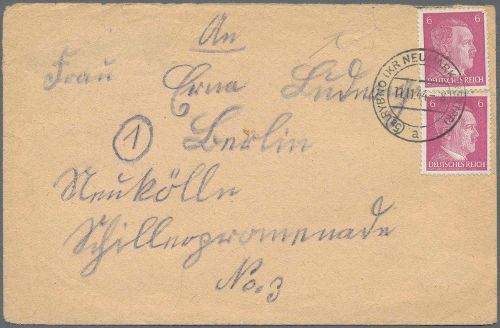 An
Frau Erna Ludwig
① Berlin
Neukölln
Schillerpromenade
No. 3
6
DEUTSCHES REICH
6
DEUTSCHES REICH
RYBNO (KR NEUMARK
11.11.44
a